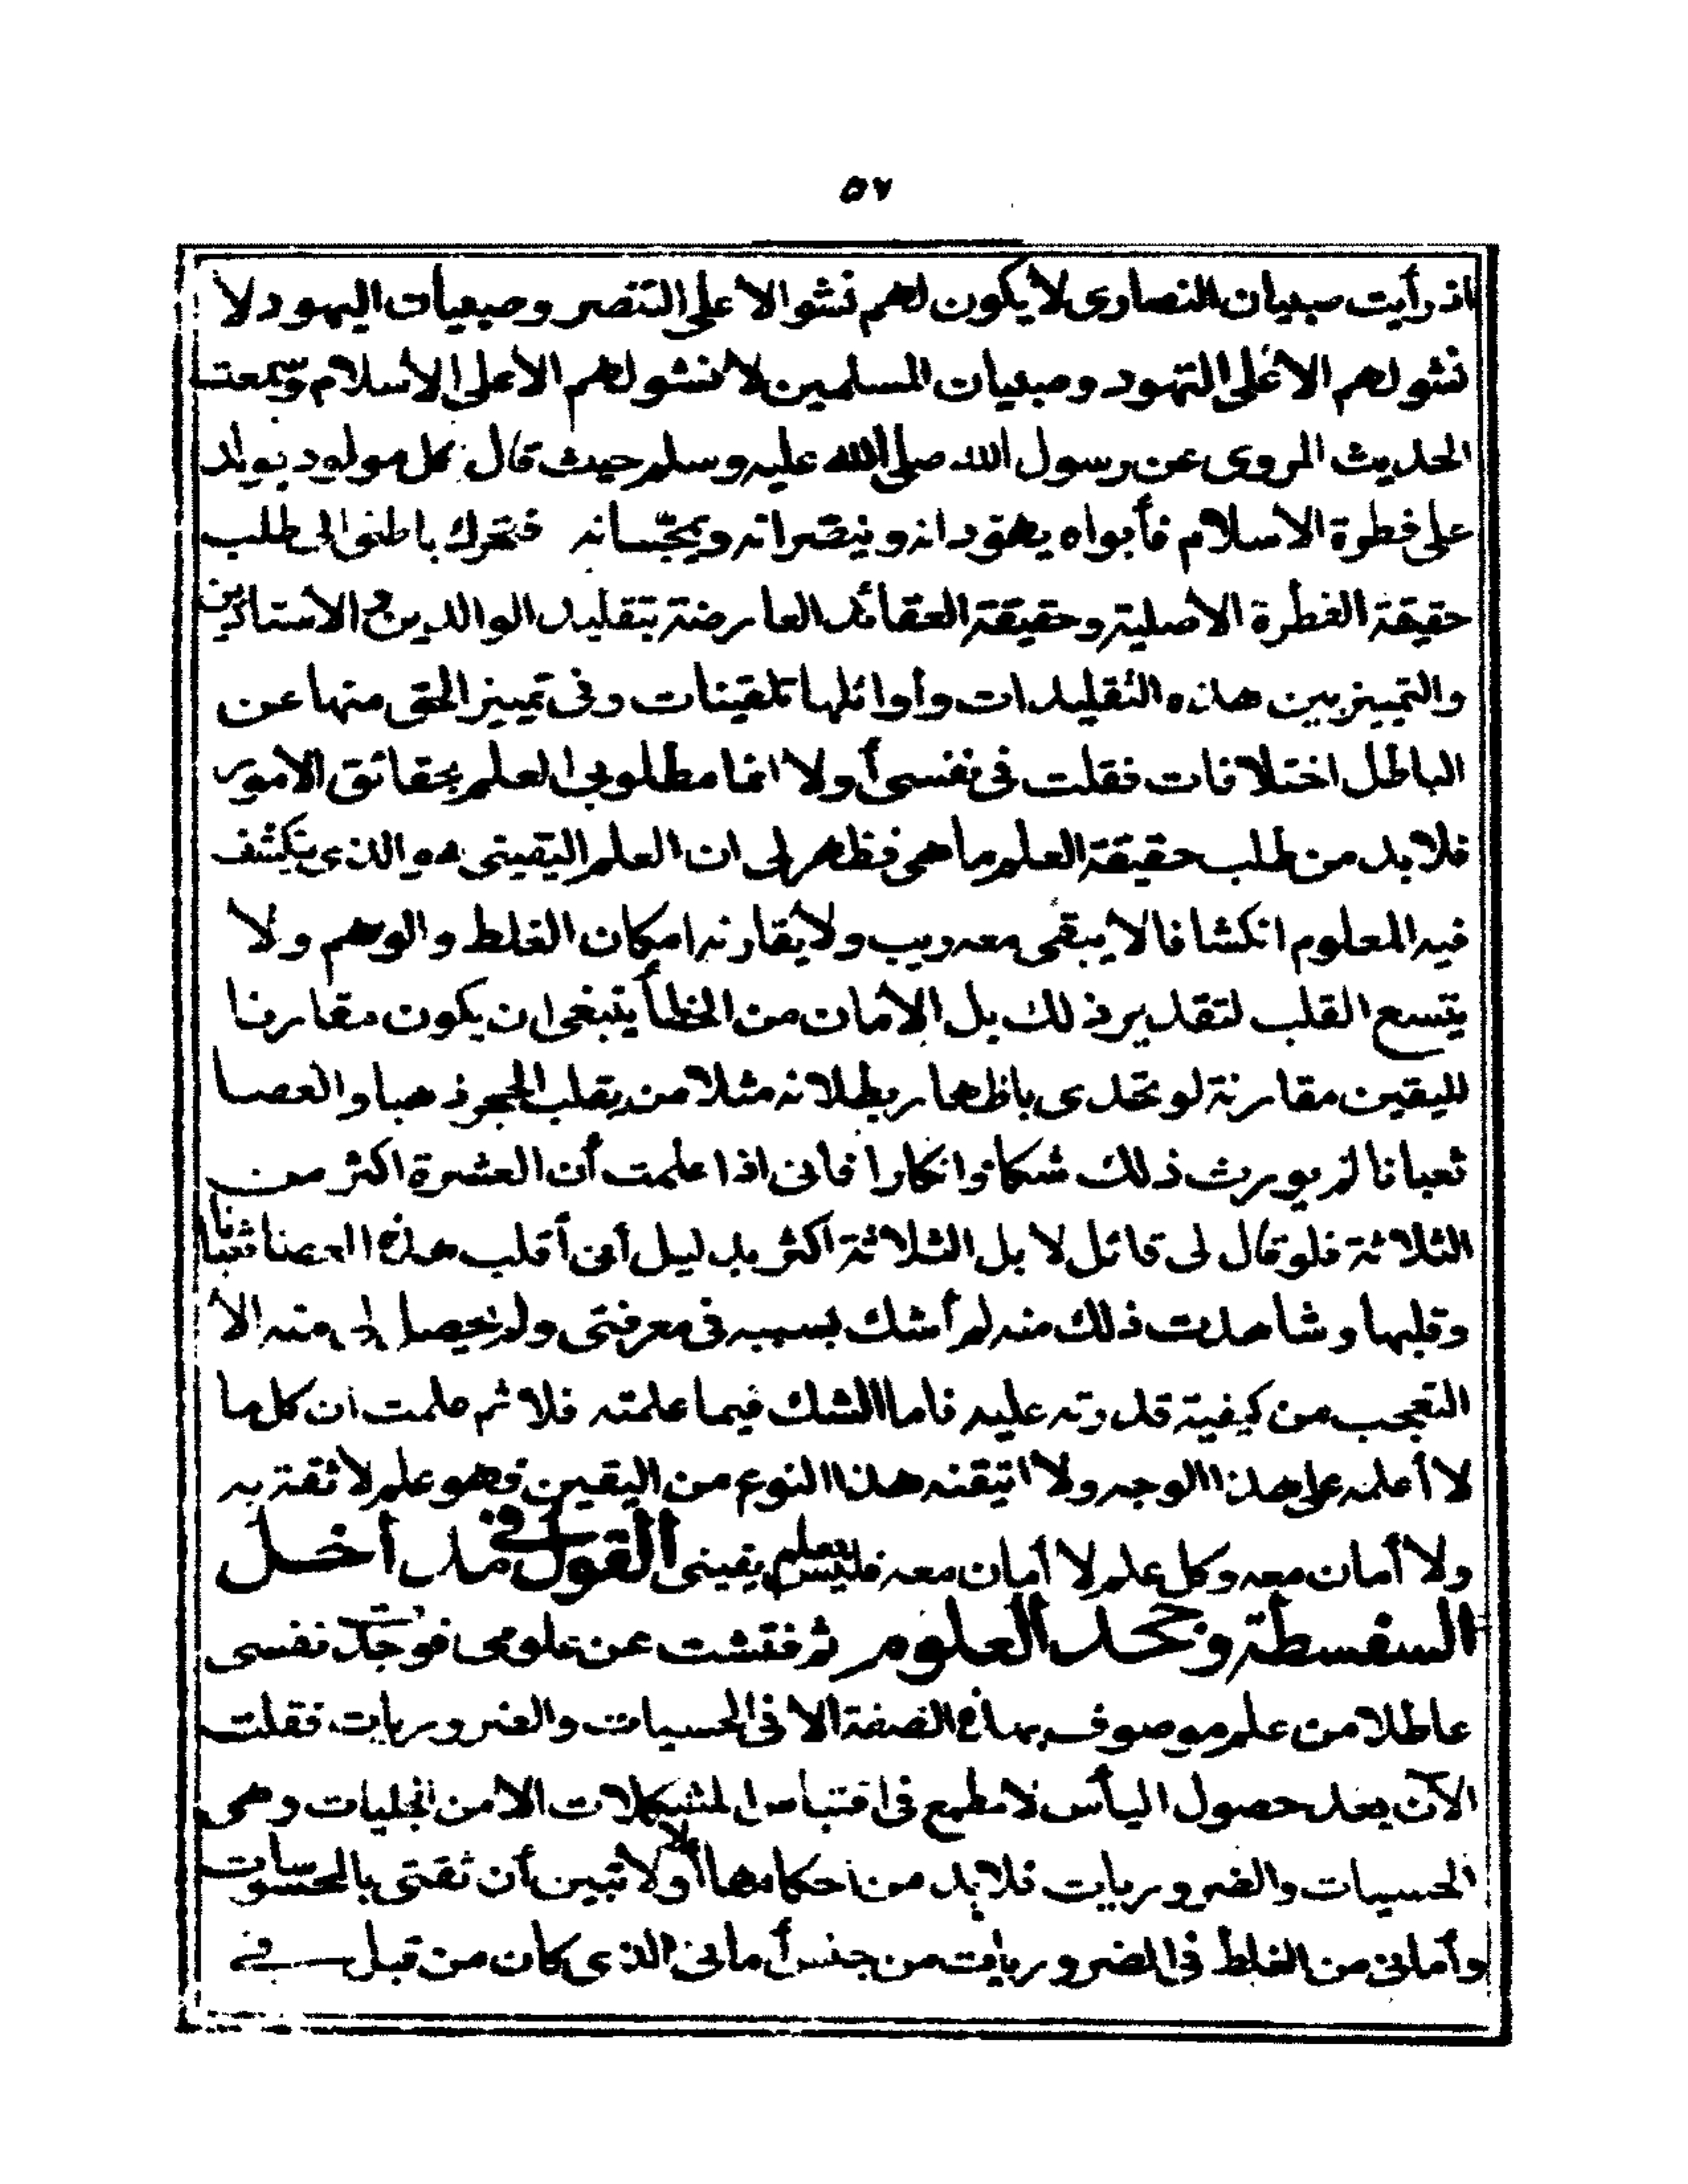 ٥٧
اذ رأيت صبيان النصارى لا يكون لهم نشو الا على التنصر وصبيان اليهود لا
نشو لهم الا على التهود وصبيان المسلمين لا نشو لهم الا على الاسلام وسمعت
الحديث المروى عن رسول الله صلى الله عليه وسلم حيث قال كل مولود يولد
على فطرة الاسلام فأبواه يهودانه وينصرانه ويمجسانه فتحرك باطنى الى طلب
حقيقة الفطرة الاصلية وحقيقة العقائد العارضة بتقليد الوالدين والاستاذين
والتمييز بين هذه التقليدات وأوائلها تلقينات وفى تمييز الحق منها عن
الباطل اختلافات فقلت فى نفسى أولا انما مطلوبى العلم بحقائق الامور
فلا بد من طلب حقيقة العلم ما هى فظهر لى ان العلم اليقينى هو الذى ينكشف
فيه المعلوم انكشافا لا يبقى معه ريب ولا يقارنه امكان الغلط والوهم ولا
يتسع القلب لتقدير ذلك بل الأمان من الخطأ ينبغى ان يكون مقارنا
لليقين مقارنة لو تحدى باظهار بطلانه مثلا من يقلب الحجر ذهبا والعصا
ثعبانا لم يورث ذلك شكا وانكارا فانى اذا علمت أن العشرة اكثر من
الثلاثة فلو قال لى قائل لا بل الثلاثة اكثر بدليل أنى أقلب هذه العصا ثعبانا
وقلبها وشاهدت ذلك منه لم أشك بسببه فى معرفتى ولم يحصل لى منه الا
التعجب من كيفية قدرته عليه فاما الشك فيما علمته فلا ثم علمت ان كل ما
لا أعلمه على هذا الوجه ولا اتيقنه هذا النوع من اليقين فهو علم لا ثقة به
ولا أمان معه وكل علم لا أمان معه فليس بعلم يقينى القول فى مداخل
السفسطة وجحد العلوم ثم فتشت عن علومى فوجدت نفسى
عاطلا من علم موصوف بهذه الصفة الا فى الحسيات والضروريات فقلت
الآن بعد حصول اليأس لا مطمع فى اقتباس المشكلات الا من الجليات وهى
الحسيات والضروريات فلا بد من احكامها أولا لأتبين أن ثقتى بالمحسوسات
وأمانى من الغلط فى الضروريات من جنس أمانى الذى كان من قبل فى